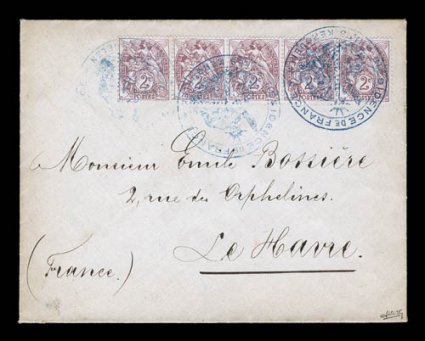 2 2 2 2
RÉSIDENCE DE FRANCE
Monsieur Emile Bossière
2, rue des Orphelines.
Le Havre.
(France.)